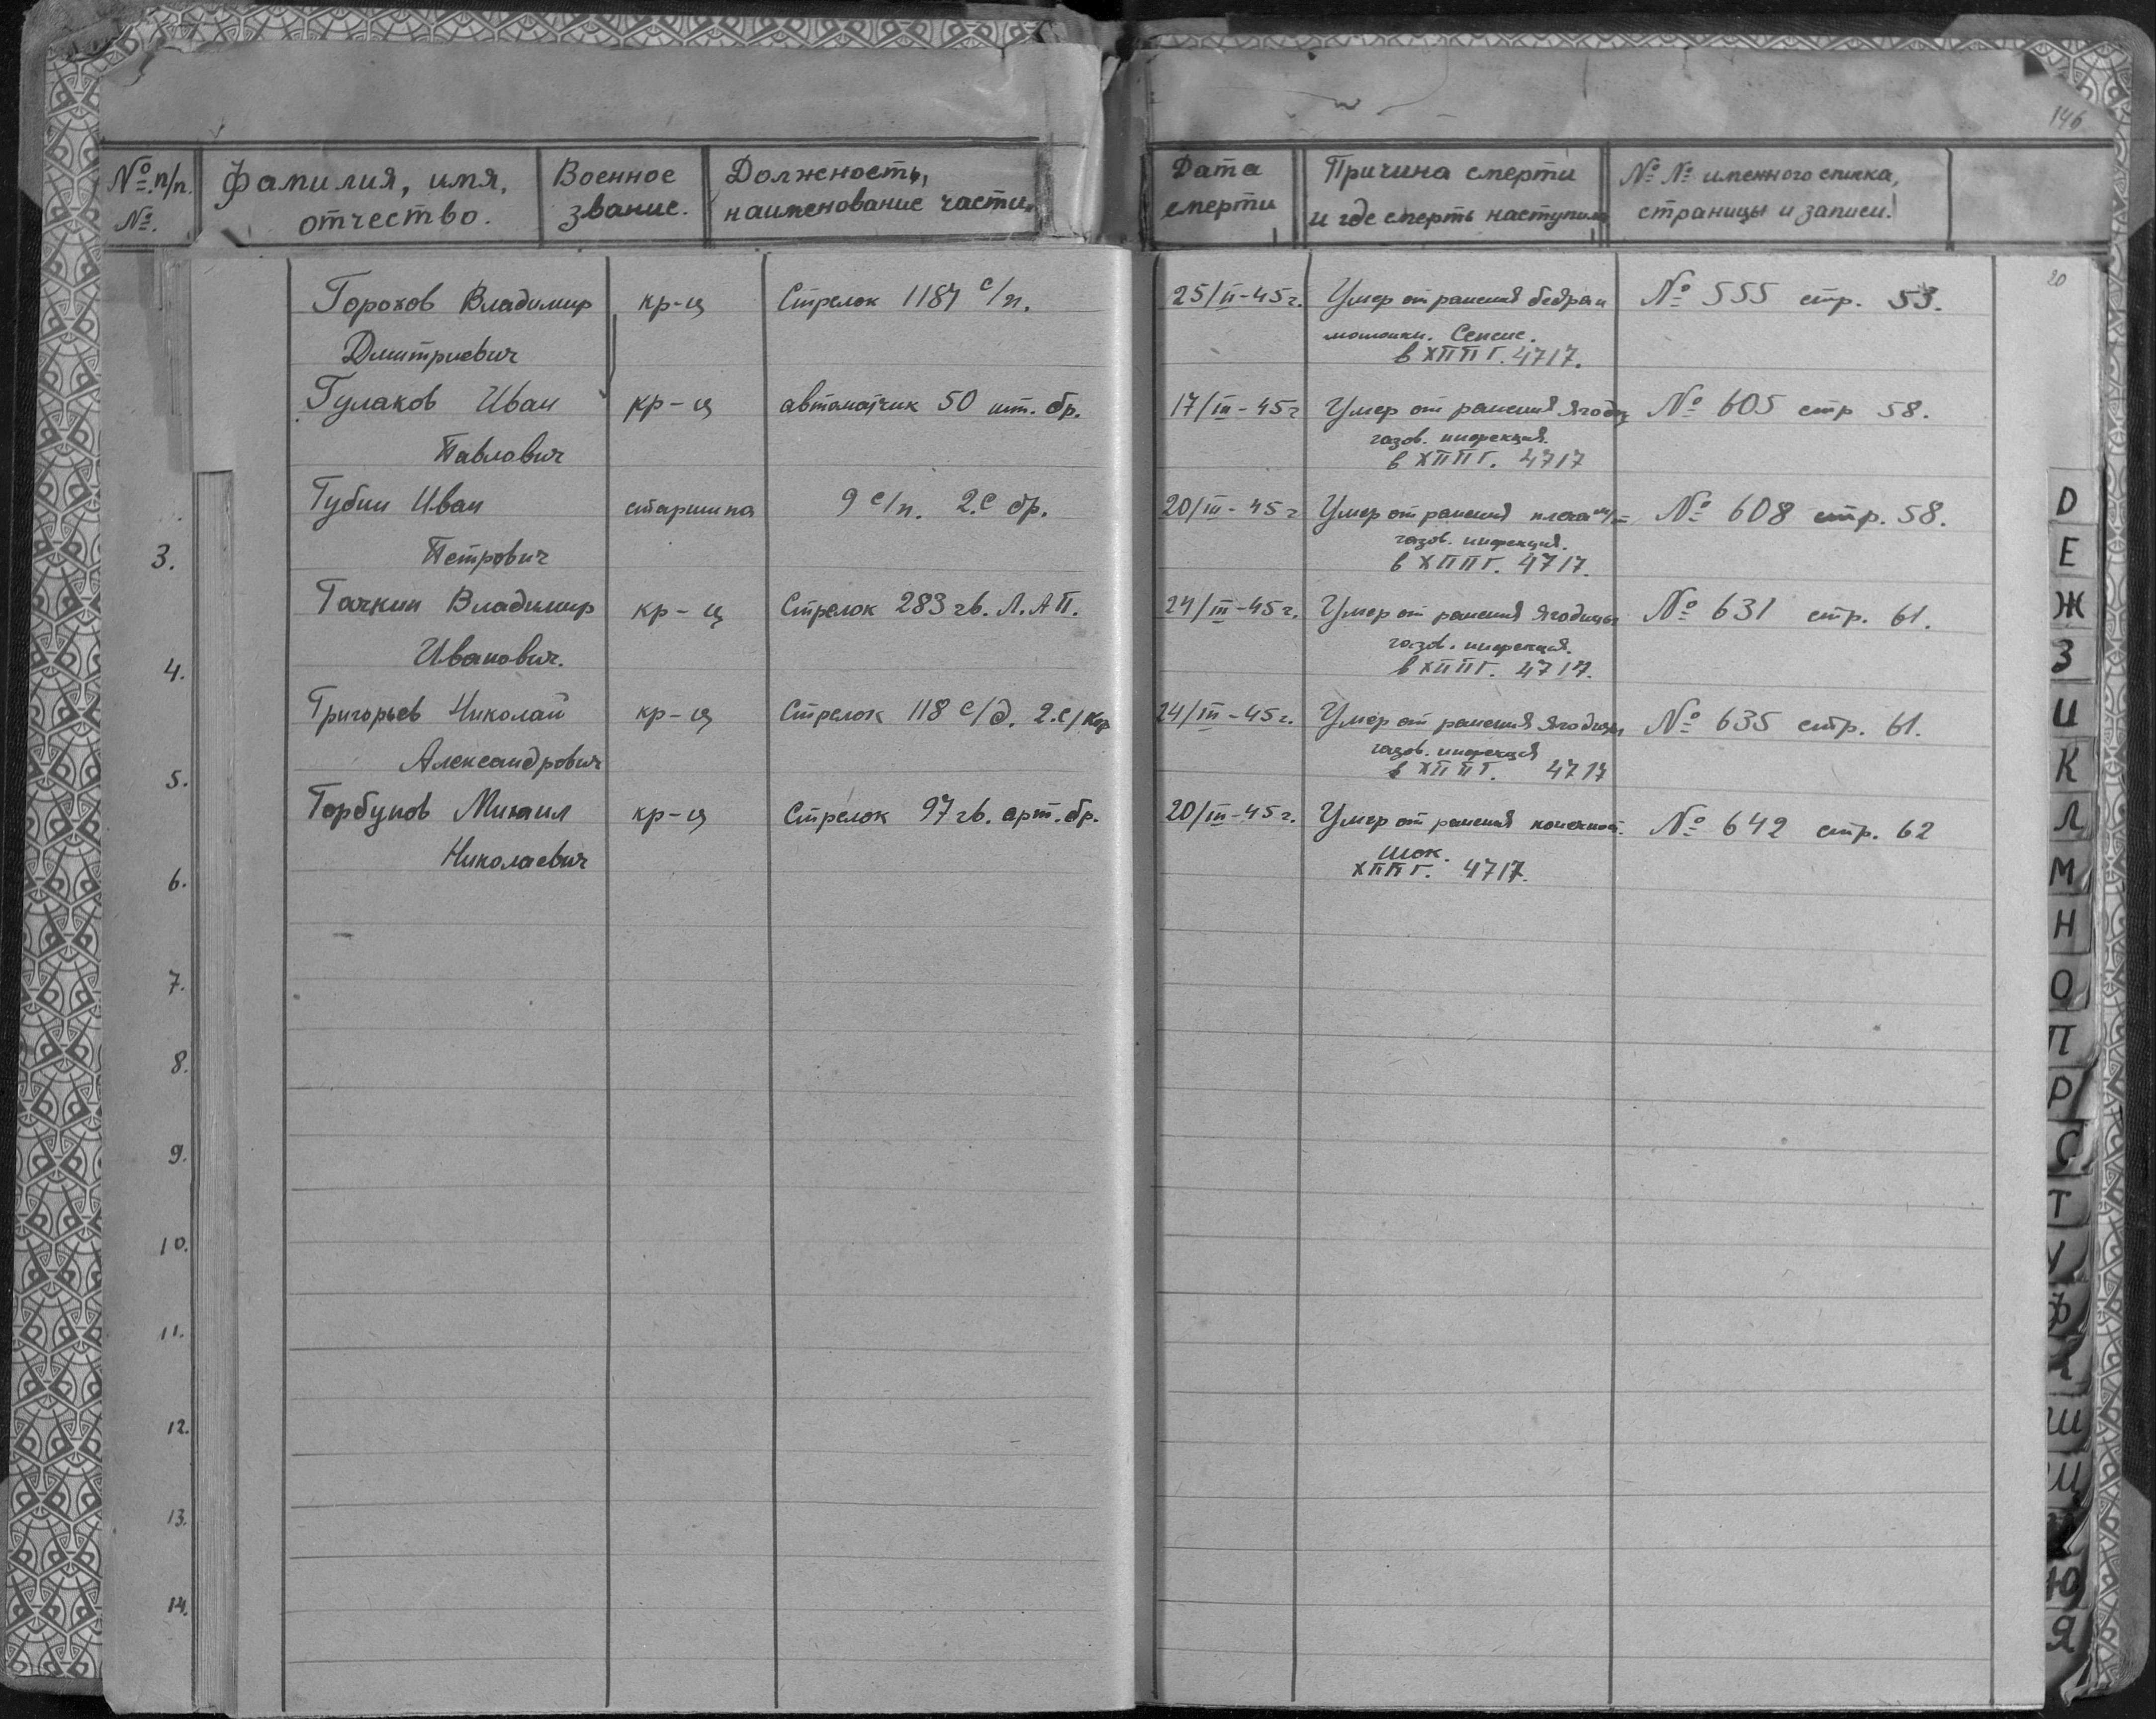 146
№ п/п. №.
Фамилия, имя, отчество.
Военное звание.
Должность, наименование части
Дата смерти
Причина смерти и где смерть наступила
№ № именного списка, страницы и записи.
20
Горохов Владимир кр-ц Стрелок 1187 с/п. 25/II-45г. Умер от ранения бедра и № 555 стр. 53.
Дмитриевич мошонки. Сепсис.
в ХППГ. 4717.
Гулаков Иван кр-ц автоматчик 50 шт. бр. 17/III-45г Умер от ранения ягодиц № 605 стр 58.
Павлович газов. инфекция.
в ХППГ. 4717
Губин Иван старшина 9 с/п. 2.С бр. 20/III-45г Умер от ранения плеча № 608 стр. 58.
Петрович газов. инфекция.
в ХППГ. 4717.
Гачкин Владимир кр-ц Стрелок 283 гв. Л.АП. 24/III-45г. Умер от ранения ягодицы № 631 стр. 61.
Иванович. газов. инфекция.
в ХППГ. 4717.
Григорьев Николай кр-ц Стрелок 118 с/д. 2.с/кор 24/III-45г. Умер от ранения ягодицы № 635 стр. 61.
Александрович газов. инфекция
в ХППГ. 4717
Горбунов Михаил кр-ц Стрелок 97 гв. арт. бр. 20/III-45г. Умер от ранения конечност. № 642 стр. 62
Николаевич шок.
ХППГ. 4717.
3.
4.
5.
6.
7.
8.
9.
10.
11.
12.
13.
14.
D
Е
Ж
З
И
К
Л
М
Н
О
П
Р
С
Т
У
Ф
Х
Ш
Щ
Ю
Я